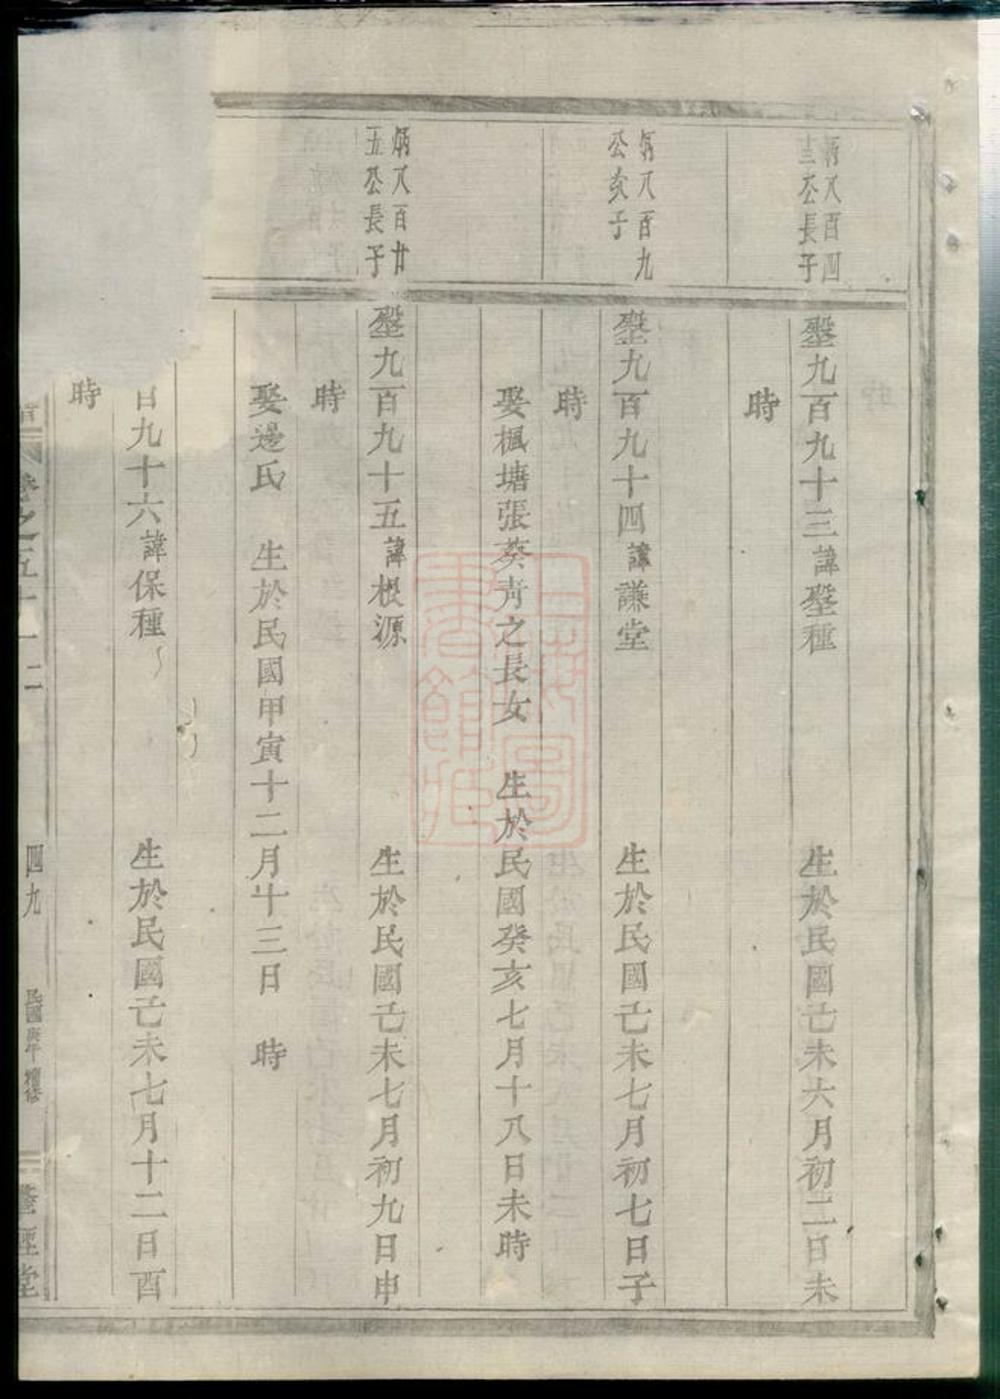 炳八百四
十三公長子
壂九百九十三諱壂種 生於民國己未六月初二日未
時
炳八百九
公次子
壂九百九十四諱謙堂 生於民國己未七月初七日子
時
娶楓塘張葵青之長女 生於民國癸亥七月十八日未時
炳八百廿
五公長子
壂九百九十五諱根源 生於民國己未七月初九日申
時
娶邊氏 生於民國甲寅十二月十三日 時
百九十六諱保種 生於民國己未七月十二日酉
時
卷之五十一
四九
民國庚午增修
經堂
上海圖書館藏